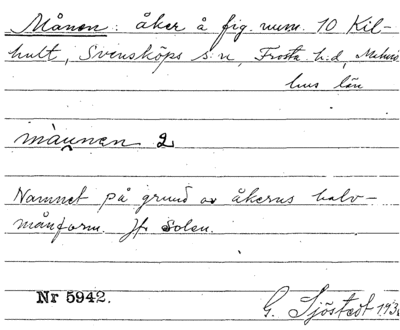 Månen: åker å fig. num. 10 Kil-
hult, Svensköps s:n, Frosta h:d, Malmö-
hus län
måu̯nen 2
Namnet på grund av åkerns halv-
månform. Jfr Solen.
Nr 5942.
G. Sjöstedt